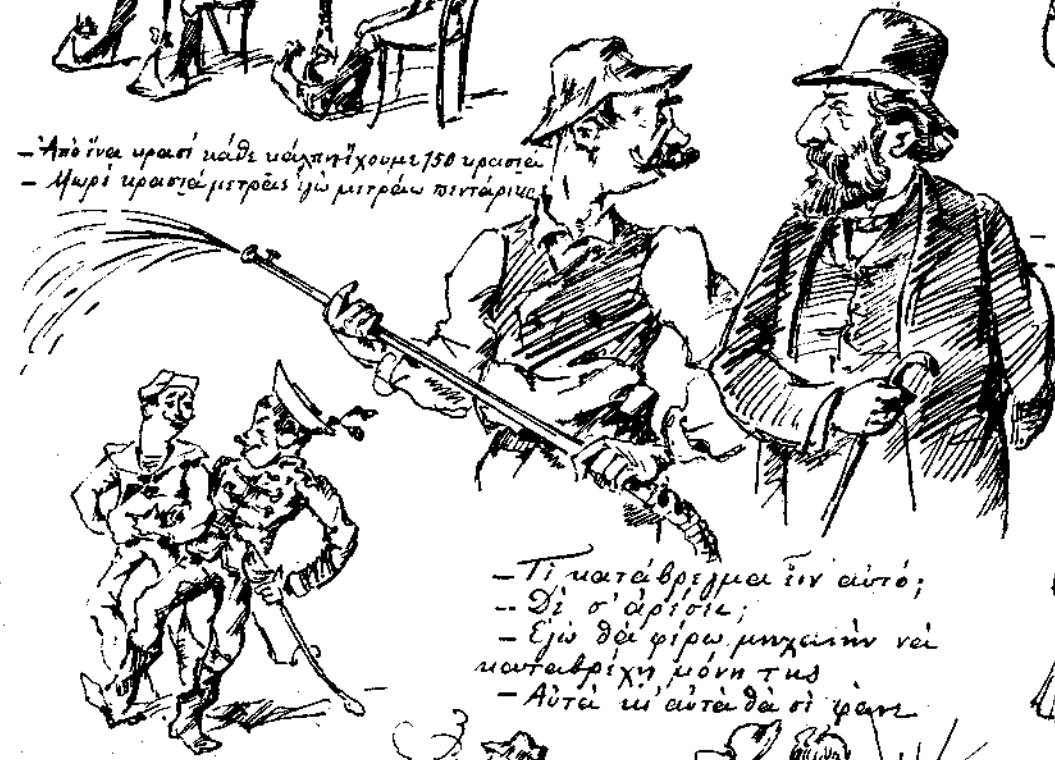 – Ἀπὸ ἕνα κρασὶ κάθε κάλπη ἔχουμε 150 κρασιά
– Μωρὲ κρασιά μετρᾶς ἐγὼ μετράω πεντάρικα
– Τὶ κατάβρεγμα εἶν' αὐτό;
– Δὲ σ' ἀρέσει;
– Ἐγὼ θὰ φέρω μηχανὴν νὰ
καταβρέχῃ μόνη της
– Αὐτὰ κι' αὐτὰ θὰ σὲ φᾶνε